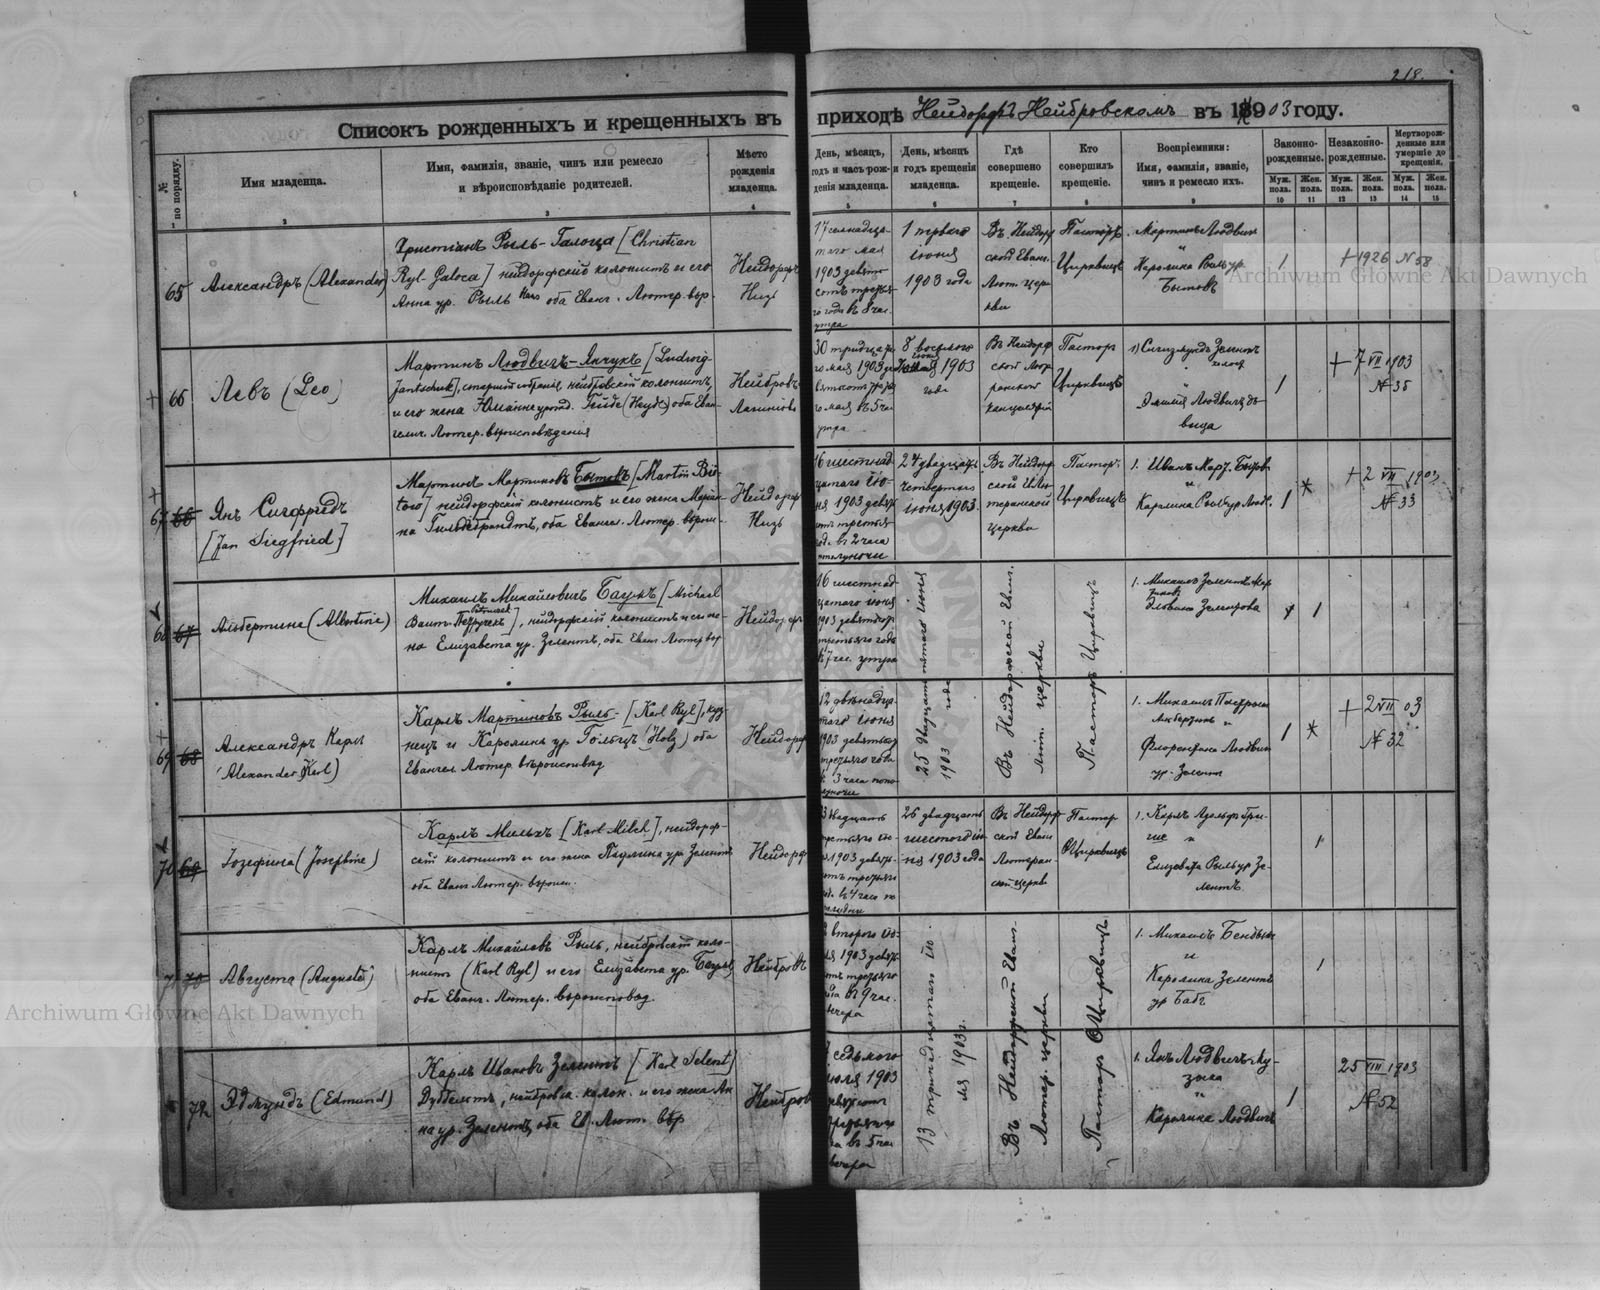 218.
Списокъ рожденныхъ и крещенныхъ въ приходѣ Нейдорфъ Нейбровскомъ въ 1903 году.
№ по порядку.
Имя младенца.
Имя, фамилія, званіе, чинъ или ремесло
и вѣроисповѣданіе родителей.
Мѣсто
рожденія
младенца.
День, мѣсяцъ,
годъ и часъ рож-
денія младенца.
День, мѣсяцъ
и годъ крещенія
младенца.
Гдѣ
совершено
крещеніе.
Кто
совершилъ
крещеніе.
Воспріемники:
Имя, фамилія, званіе,
чинъ и ремесло ихъ.
Законно-
рожденные.
Незаконно-
рожденные.
Мертворож-
денные или
умершіе до
крещенія.
Муж. пола.
Жен. пола.
Муж. пола.
Жен. пола.
Муж. пола.
Жен. пола.
1 2 3 4 5 6 7 8 9 10 11 12 13 14 15
65
Александръ (Alexander)
Христіанъ Рыль-Галоца [Christian
Ryl-Galoca] нейдорфскій колонистъ и его
Анна ур. Рыль оба Еванг. Лютер. вѣр.
Нейдорфъ
Низъ
17 семнадца-
таго мая
1903 девять
сотъ третья-
го года въ 8 час.
утра
1 перваго
іюня
1903 года
Въ Нейдорф
ской Еванг.
Лют. цер
кви
Пасторъ
Цирквицъ
Мартинъ Людвигъ
и
Каролина Рыль ур.
Бытовъ
1
+ 1926 N 58
Archiwum Główne Akt Dawnych
+ 66
Левъ (Leo)
Мартинъ Людвигъ-Янчукъ [Ludwig-
Jantschuk], нейбровскій колонистъ,
и его жена Юліанне урожд. Гейде (Heyde) оба Еван-
гелич. Лютер. вѣроисповѣданія
Нейбровъ
30 тридца
го мая 1903
утра
8 восьмого
іюня 1903
года
Въ Нейдорф
ской Лют
ранской
канцеляріи
Пасторъ
Цирквицъ
1) Сигизмундъ Зелентъ
и
Эмилія Людвигъ дѣ-
вица
1
+ 7 VI 1903
№ 35
+
67 66
Янъ Сигфридъ
[Jan Siegfried]
Мартинъ Мартиновъ Бытовъ [Martin Bü-
tow] нейдорфскій колонистъ и его жена Маріан-
на Гильдебрандтъ, оба Евангел. Лютер. вѣрои-
Нейдорфъ
Низъ
16 шестнад-
цатаго Ію-
ня 1903 девять
сотъ третья
года въ 2 часа
полуночи
24 двадцать
четвертаго
іюня 1903.
Въ Нейдорф
ской Лю
теранской
церкви
Пасторъ
Цирквицъ
1. Иванъ Карл. Бытов
и
Каролина Рыль ур. Людв.
1
*
+ 2 VII 1903
№ 33
68 67
Альбертина (Albertine)
Михаилъ Михайловичъ Баумъ [Michael
Baum-Петручек], нейдорфскій колонистъ и его же-
на Елизавета ур. Зелентъ, оба Еванг. Лютер. вѣр
Нейдорфъ
16 шестнад-
цатаго іюня
1903 девятьсот
третьяго года
въ 7 час. утра
25 двадцать пятаго іюня
1903 года
Въ Нейдорфской Еванг.
Лют. церкви
Пасторъ Цирквицъ
1. Михаилъ Зелентъ
1
+
69 68
Александръ Карлъ
(Alexander Karl)
Карлъ Мартиновъ Рыль - [Karl Ryl], куз-
нецъ и Каролина ур. Гольцъ (Holz) оба
Евангел. Лютер. вѣроисповѣд
Нейдорфъ
12 двѣнадца-
таго іюня
1903 девятьсот
третьяго года
въ 3 часа попо-
луночи
1. Михаилъ
и
Флорентина Людвигъ
ур. Зелентъ
1
*
+ 2 VII 03
№ 32
70 69
Іозефина (Josephine)
Карлъ Мильхъ [Karl Milch], нейдорф-
скій колонистъ и его жена Паулина ур. Зелентъ
оба Еванг. Лютер. вѣроисп.
Нейдорфъ
23 двадцать
третьяго ію-
ня 1903 девять-
сотъ третьяго
года въ 4 часа по
полудни
26 двадцать
шестого ію
ня 1903 года
Въ Нейдорф
ской Еванг
Лютеран
ской церкви
Пасторъ
О Цирквицъ
1. Карлъ Адольфъ
и
Елизавета Рыль ур. Зе-
лентъ.
1
71 70
Августа (Auguste)
Карлъ Михайловъ Рыль, нейбровскій коло-
нистъ (Karl Ryl) и его Елизавета ур. Баумъ,
оба Еванг. Лютер. вѣроисповѣд.
Нейбровъ
2 второго Ію-
ля 1903 девять-
сотъ третьяго
года въ 9 час.
вечера
13 тринадцатаго ію-
ля 1903 г.
Въ Нейдорфской Еванг.
Лютер. церкви
Пасторъ О Цирквицъ
1. Михаилъ
и
Каролина Зелентъ
ур. Бабъ
1
Archiwum Główne Akt Dawnych
72
Эдмундъ (Edmund)
Карлъ Ивановъ Зелентъ [Karl Selent]
нейбровск. колон. и его жена Ан-
на ур. Зелентъ, оба Ев. Лют. вѣр
Нейбровъ
7 седьмого
іюля 1903
девятьсот
третьяго
года въ 5 час
вечера
1. Янъ Людвигъ
и
Каролина Людвигъ
1
25 VIII 1903
№ 52